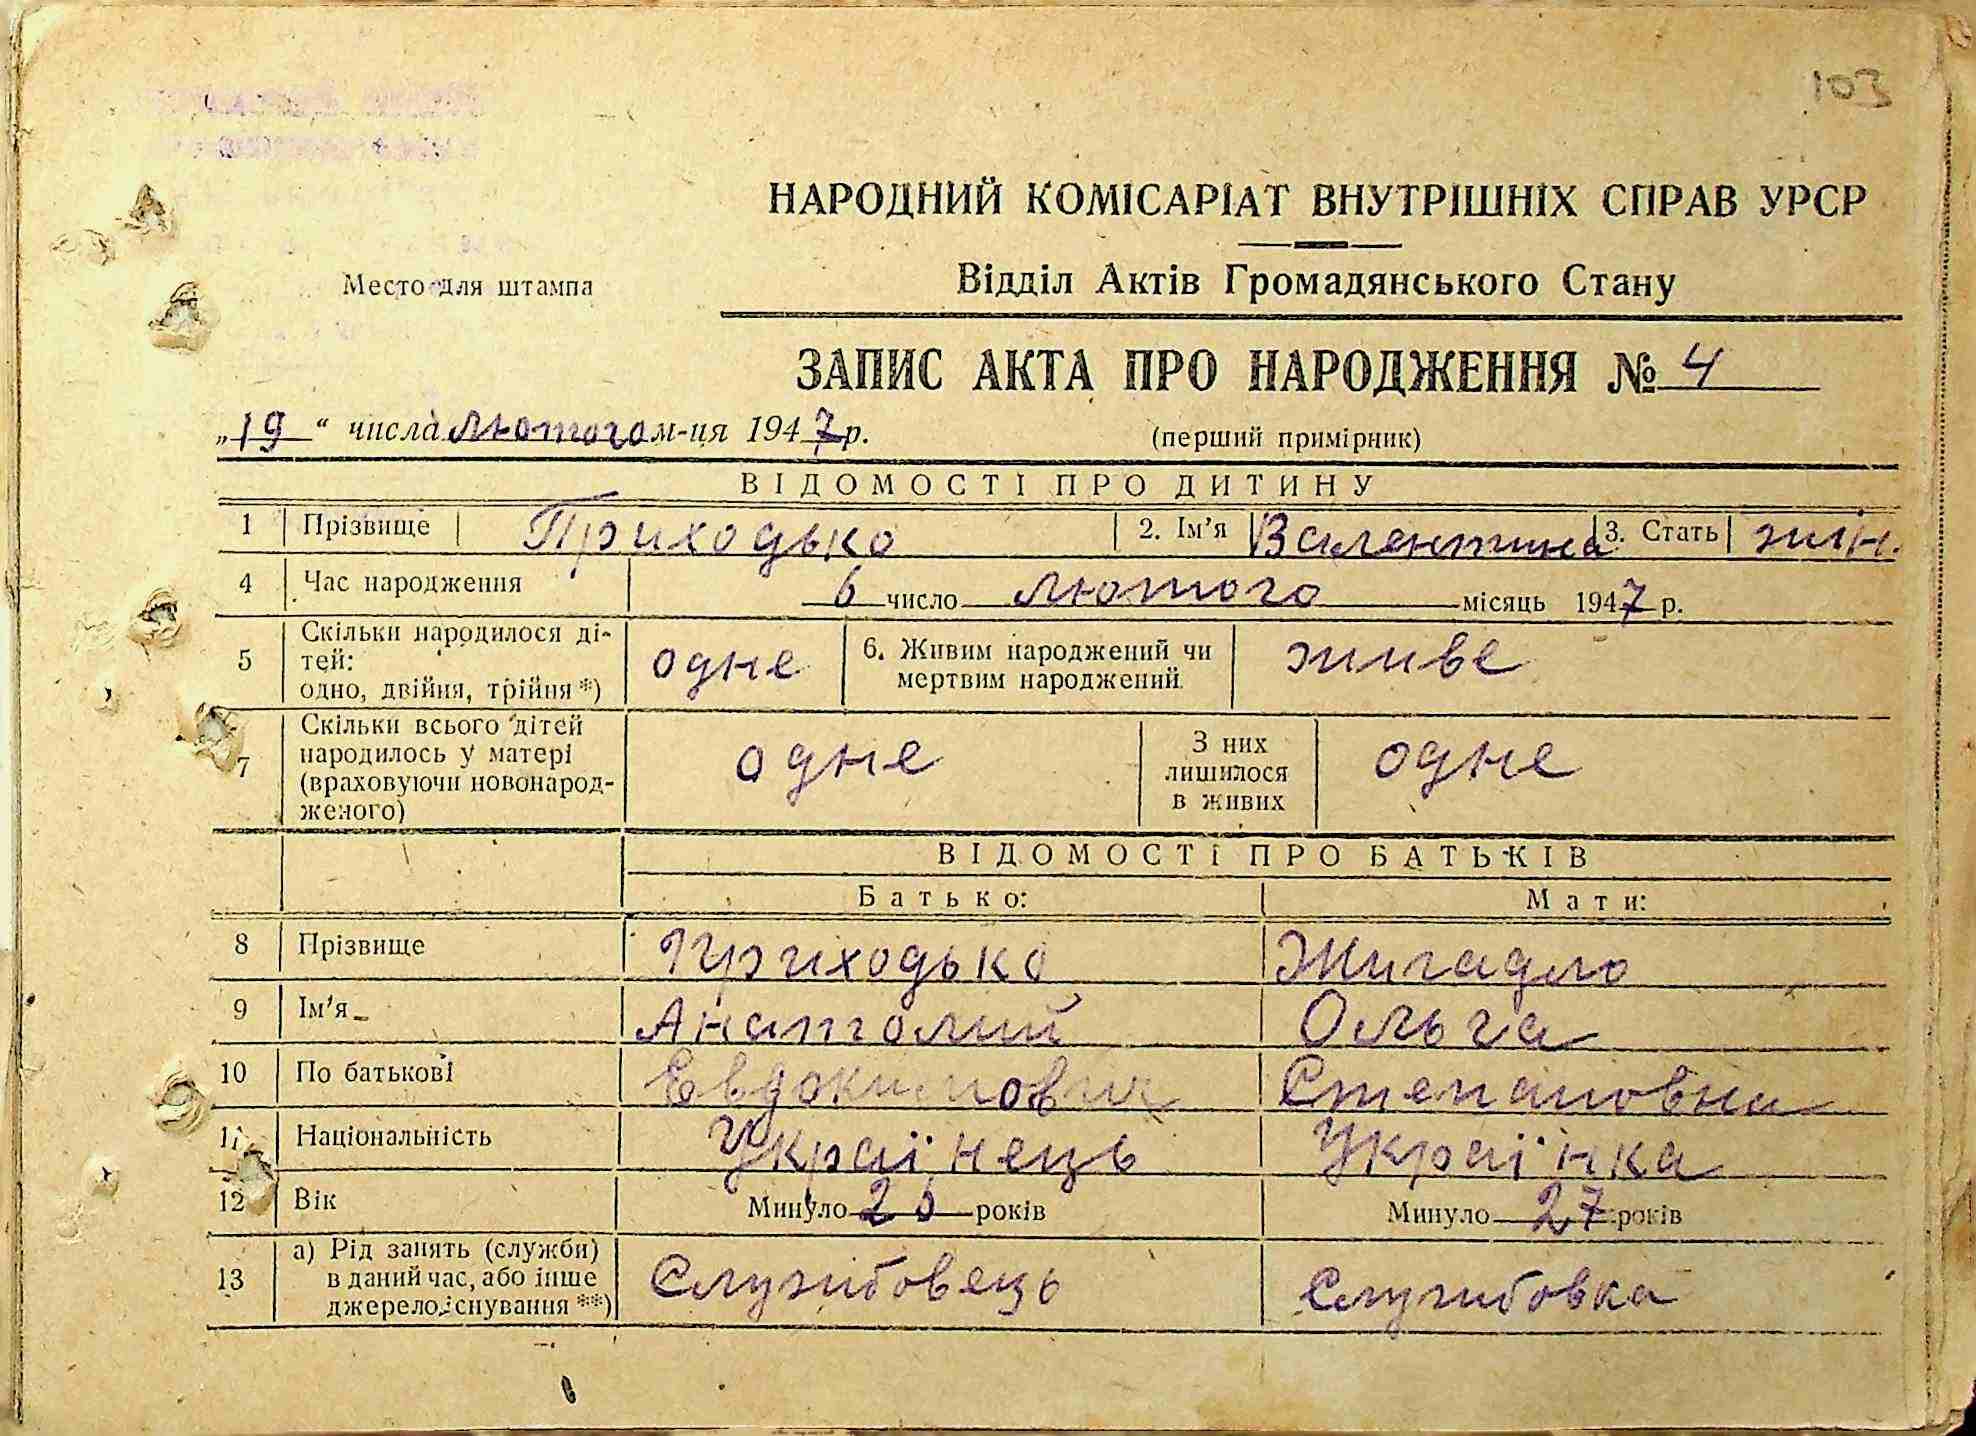 103
НАРОДНИЙ КОМІСАРІАТ ВНУТРІШНІХ СПРАВ УРСР
Место для штампа
Відділ Актів Громадянського Стану
ЗАПИС АКТА ПРО НАРОДЖЕННЯ № 4
„19“ числа лютого м-ця 1947 р. (перший примірник)
ВІДОМОСТІ ПРО ДИТИНУ
1 Прізвище Приходько 2. Ім'я Валентина 3. Стать жін.
4 Час народження 6 число лютого місяць 1947 р.
5 Скільки народилося ді-
тей:
одно, двійня, трійня *) одне 6. Живим народжений чи
мертвим народжений. живе
7 Скільки всього дітей
народилось у матері
(враховуючи новонарод-
женого) одне З них
лишилося
в живих одне
ВІДОМОСТІ ПРО БАТЬКІВ
Батько: Мати:
8 Прізвище Приходько Жигадло
9 Ім'я Анатолий Ольга
10 По батькові Евдокимович Степановна
11 Національність Українець Українка
12 Вік Минуло 26 років Минуло 27 років
13 а) Рід занять (служби)
в даний час, або інше
джерело існування **) Службовець Службовка